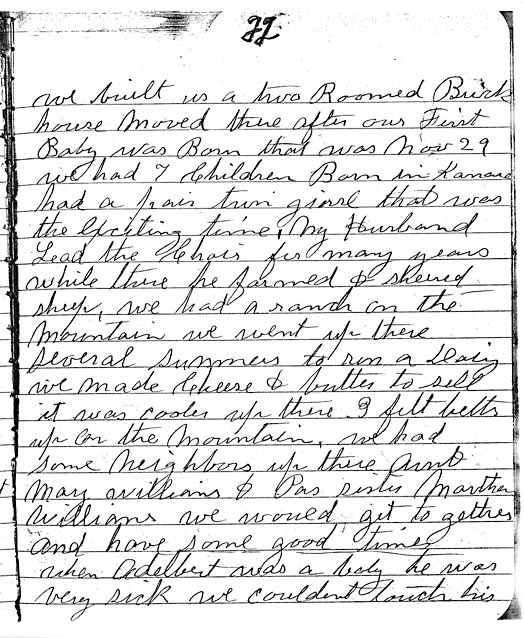 22
we built us a two Roomed Brick
house Moved there after our First
Baby was Born that was Nov 29
we had 7 Children Born in Kanarra
had a pair twin girel that was
the Exciting time, My Husband
Lead the Choir for many years
while there he farmed & sheired
sheep, we had a ranch on the
Mountain we went up there
several summers to run a Dairy
we made Cheese & butter to sell
it was cooler up there I felt better
up on the Mountain, we had
some Neighbors up there Aunt
May williams & Pas sister Martha
Williams we would get to gether
and have some good times
when Adelbert was a baby he was
very sick we couldent touch his